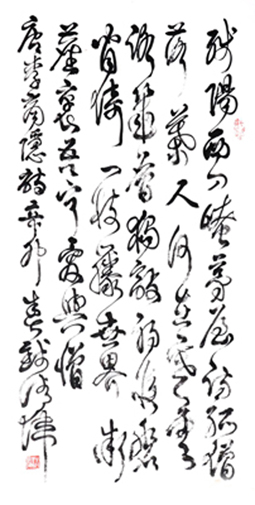 殘陽西入崦茅屋訪孤僧
落葉人何在寒雲
路幾層獨敲初夜磬
閒倚一枝藤世界微
塵裏吾寧愛與憎
唐李商隱詩辛卯春